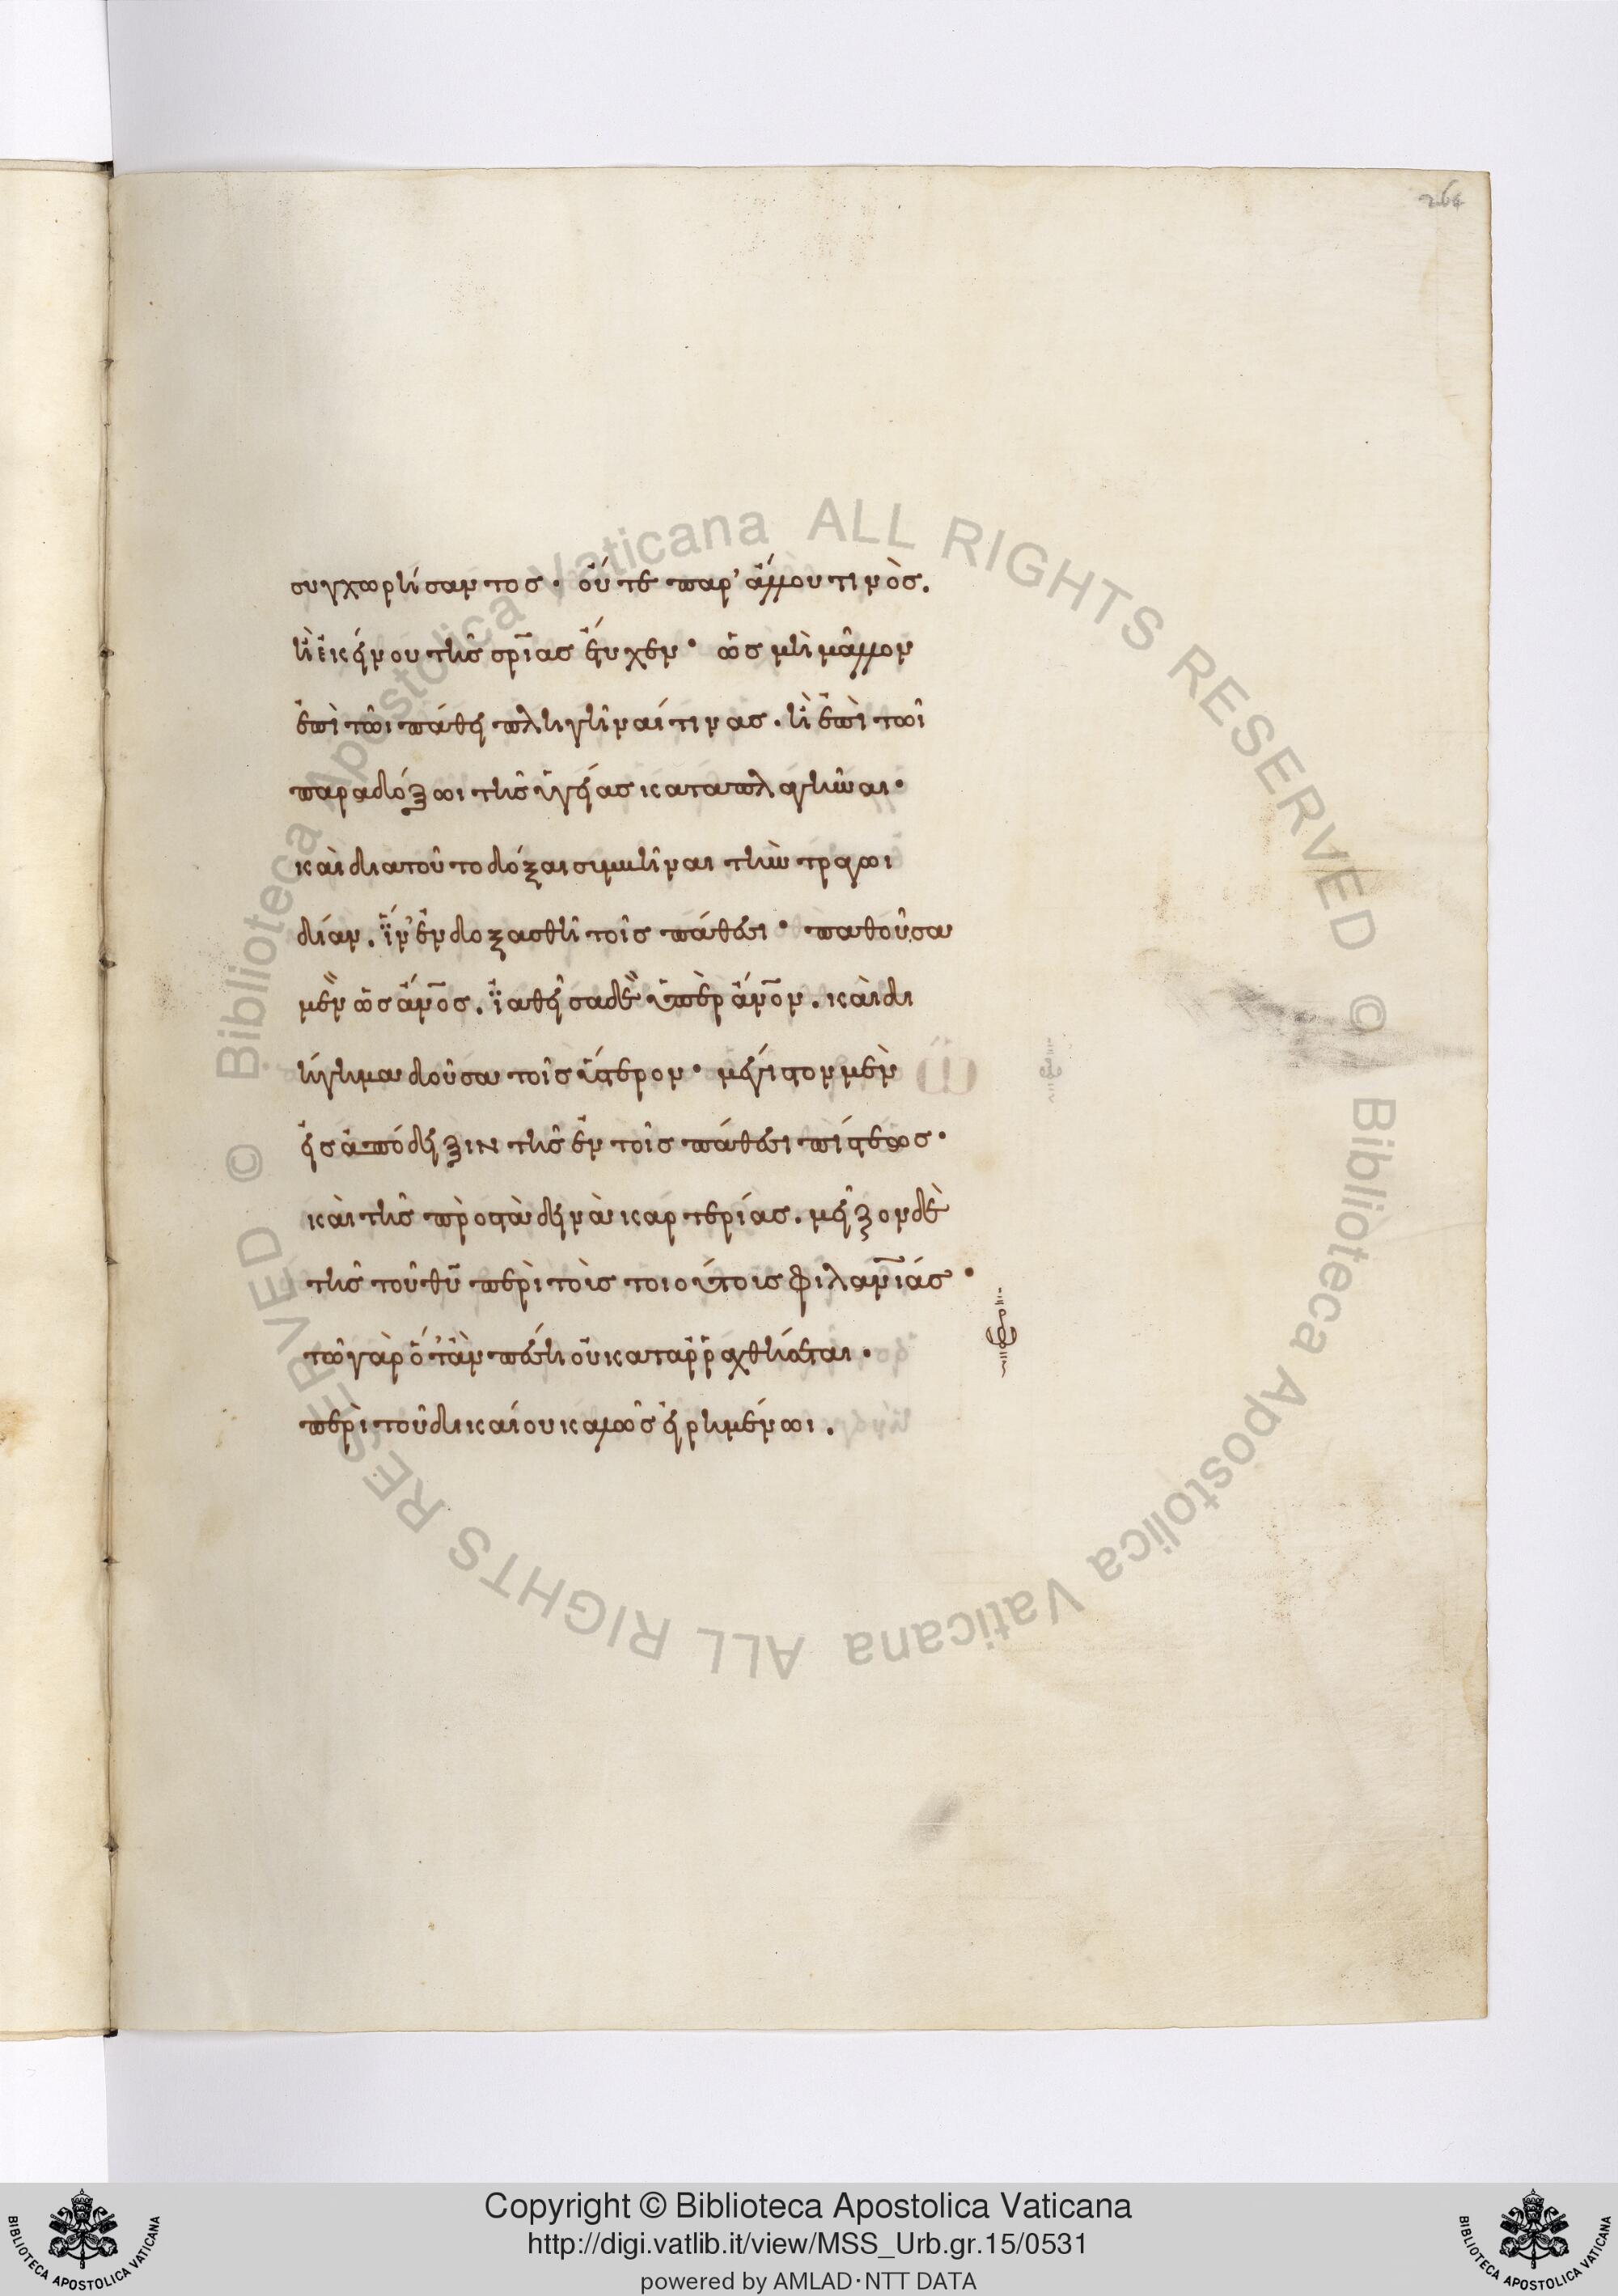 264
συγχωρήσαντος· οὔτε παρ' ἄλλου τινὸς.
ἢ ἐκείνου τῆς σρίας ἔτυχεν· ὡς μὴ μᾶλλον
ἐπὶ τῶι πάθει πληγῆναί τινας. ἢ ἐπὶ τῶι
παραδόξωι τῆς ὑγείας καταπλαγῆναι·
καὶ διατοῦτο δόξαι συμβῆναι τὴν τραγωι
δίαν. ἵν' ἐνδοξασθῆι τοῖς πάθεσι· παθοῦσα
μὲν ὡς ἄνος. ἰαθεῖσα δὲ ὑπὲρ ἄνον. καὶ δι
ήγημα δοῦσα τοῖς ὕστερον· μέγιστον μὲν
εἰς ἀπόδειξιν τῆς ἐν τοῖς πάθεσι πίστεως·
καὶ τῆς πρὸς τὰ δεινὰ καρτερίας. μεῖζον δὲ
τῆς τοῦ θῦ περὶ τοὺς τοιούτους φιλανίας·
τῶ γὰρ ὅταν πέσηι οὐ καταρραχθήσεται·
περὶ τοῦ δικαίου καλῶς εἰρημένωι.
Copyright © Biblioteca Apostolica Vaticana
http://digi.vatlib.it/view/MSS_Urb.gr.15/0531
powered by AMLAD·NTT DATA
BIBLIOTECA APOSTOLICA VATICANA
BIBLIOTECA APOSTOLICA VATICANA
© Biblioteca Apostolica Vaticana ALL RIGHTS RESERVED
© Biblioteca Apostolica Vaticana ALL RIGHTS RESERVED